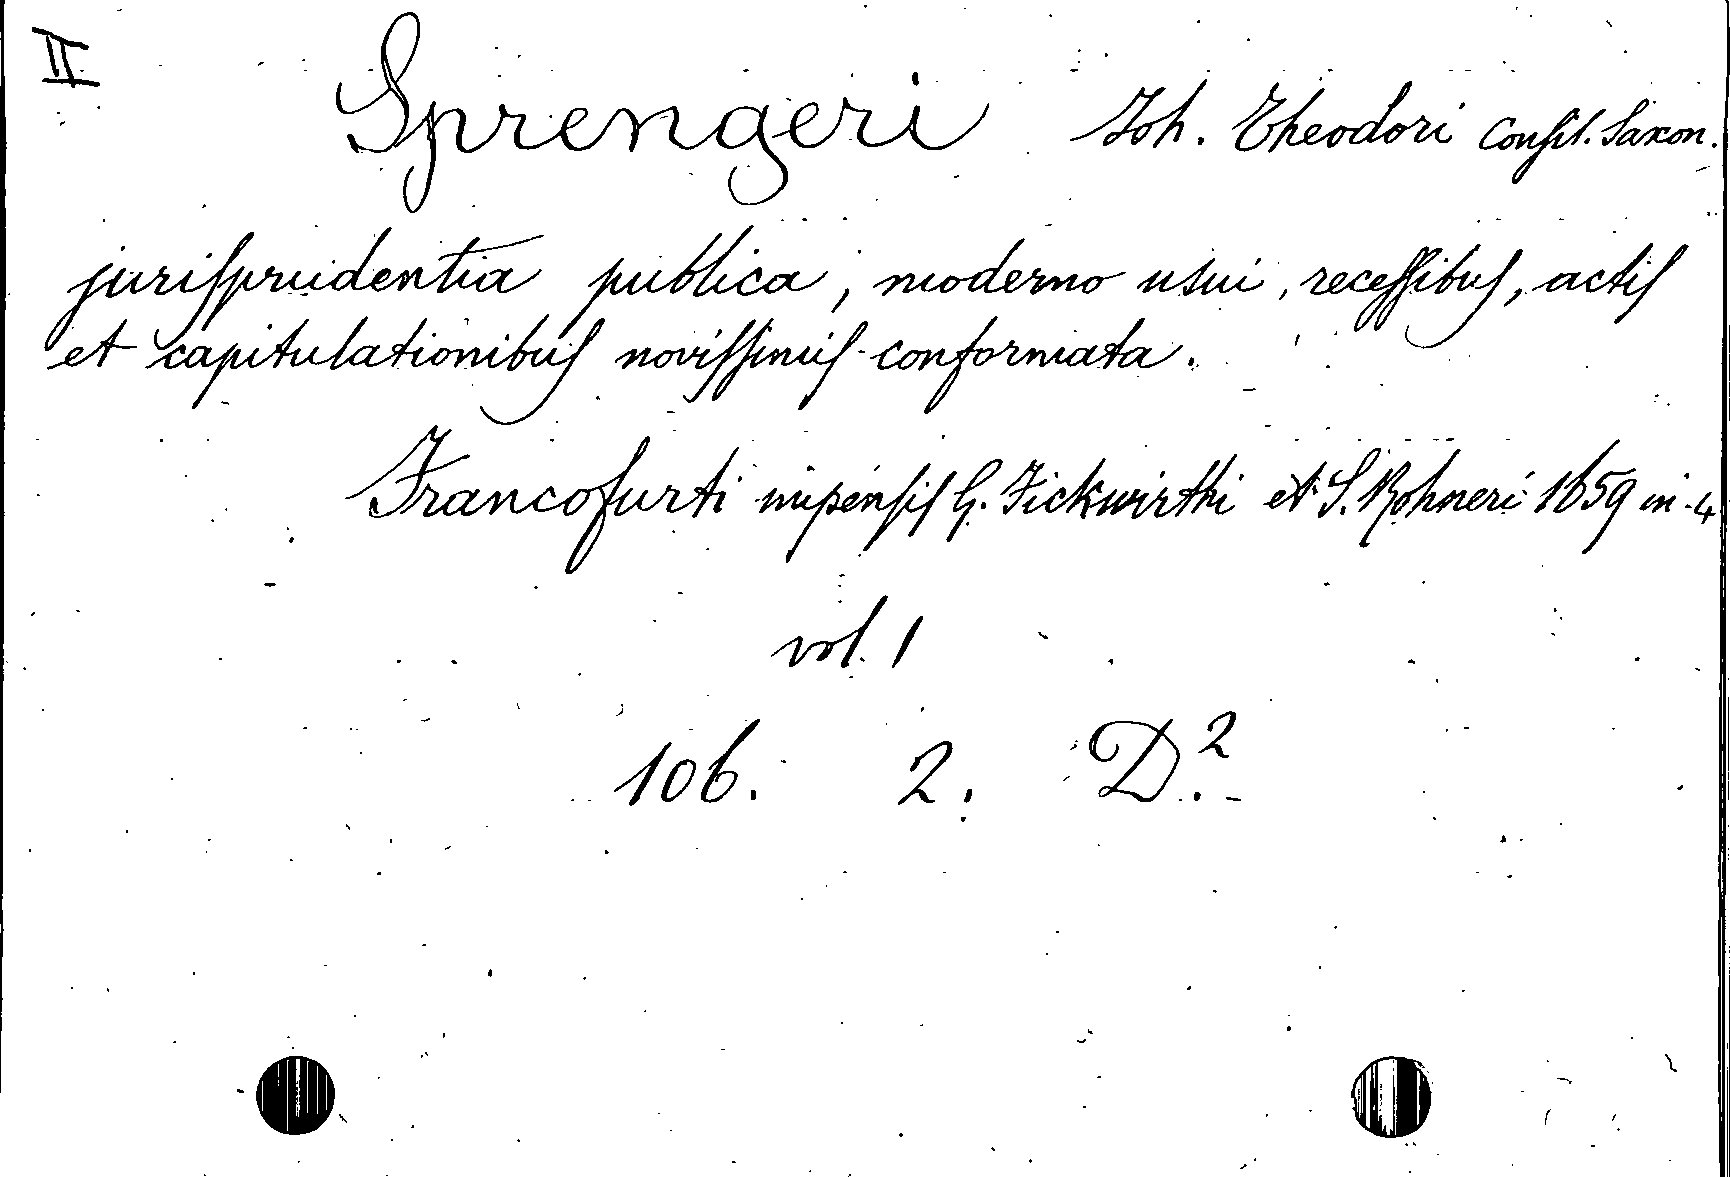 II
Sprengeri Joh. Theodori Consil. Saxon.
jurisprudentia publica, moderno usui, recessibus, actis
et capitulationibus novissimis conformata.
Francofurti impensis G. Fickwirthi et S. Rohneri 1659 in-4
vol. 1
106. 2. D.²